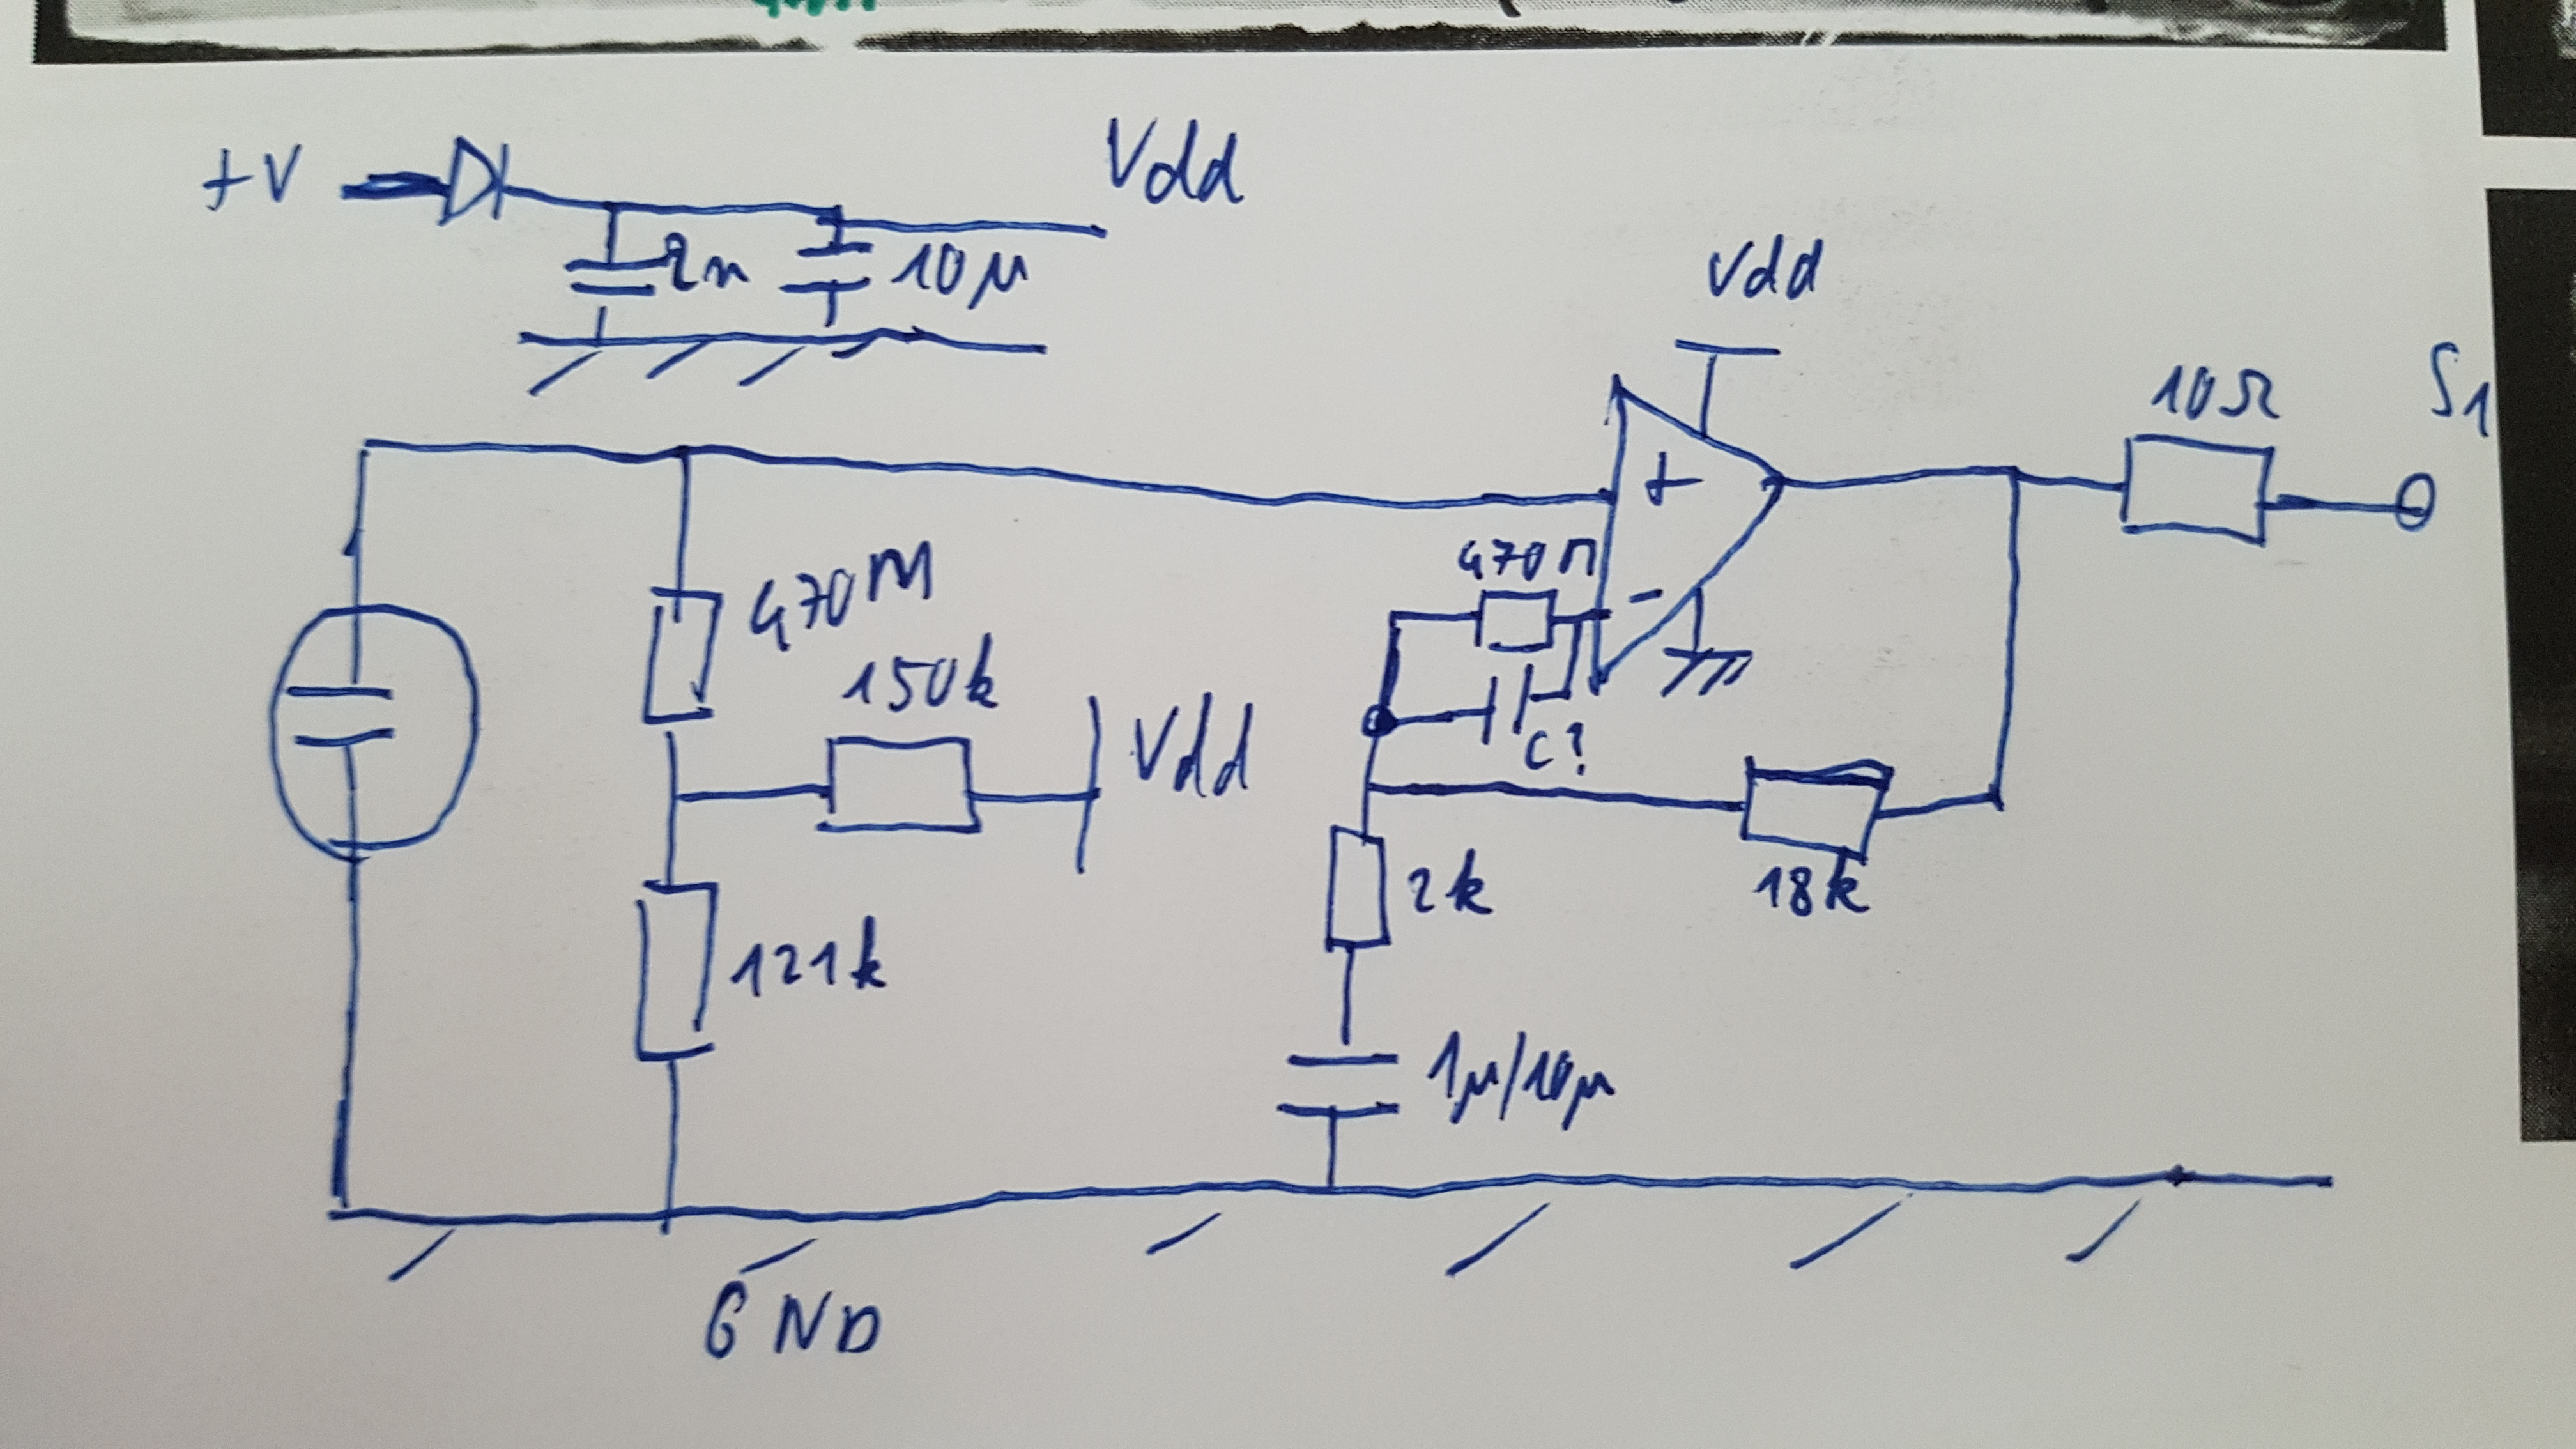 +V
Vdd
2n
10µ
Vdd
10Ω
S1
+
470M
470M
-
150k
Vdd
C?
121k
2k
18k
1µ/10µ
GND